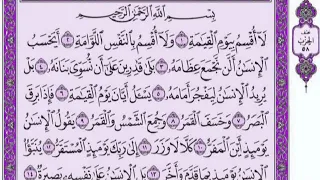 بِسْمِ اللَّهِ الرَّحْمَٰنِ الرَّحِيمِ
لَا أُقْسِمُ بِيَوْمِ الْقِيَامَةِ ١ وَلَا أُقْسِمُ بِالنَّفْسِ اللَّوَّامَةِ ٢ أَيَحْسَبُ
الْإِنسَانُ أَلَّن نَّجْمَعَ عِظَامَهُ ٣ بَلَىٰ قَادِرِينَ عَلَىٰ أَن نُّسَوِّيَ بَنَانَهُ ٤ بَلْ
يُرِيدُ الْإِنسَانُ لِيَفْجُرَ أَمَامَهُ ٥ يَسْأَلُ أَيَّانَ يَوْمُ الْقِيَامَةِ ٦ فَإِذَا بَرِقَ
الْبَصَرُ ٧ وَخَسَفَ الْقَمَرُ ٨ وَجُمِعَ الشَّمْسُ وَالْقَمَرُ ٩ يَقُولُ الْإِنسَانُ
يَوْمَئِذٍ أَيْنَ الْمَفَرُّ ١٠ كَلَّا لَا وَزَرَ ١١ إِلَىٰ رَبِّكَ يَوْمَئِذٍ الْمُسْتَقَرُّ ١٢ يُنَبَّأُ
الْإِنسَانُ يَوْمَئِذٍ بِمَا قَدَّمَ وَأَخَّرَ ١٣ بَلِ الْإِنسَانُ عَلَىٰ نَفْسِهِ بَصِيرَةٌ ١٤